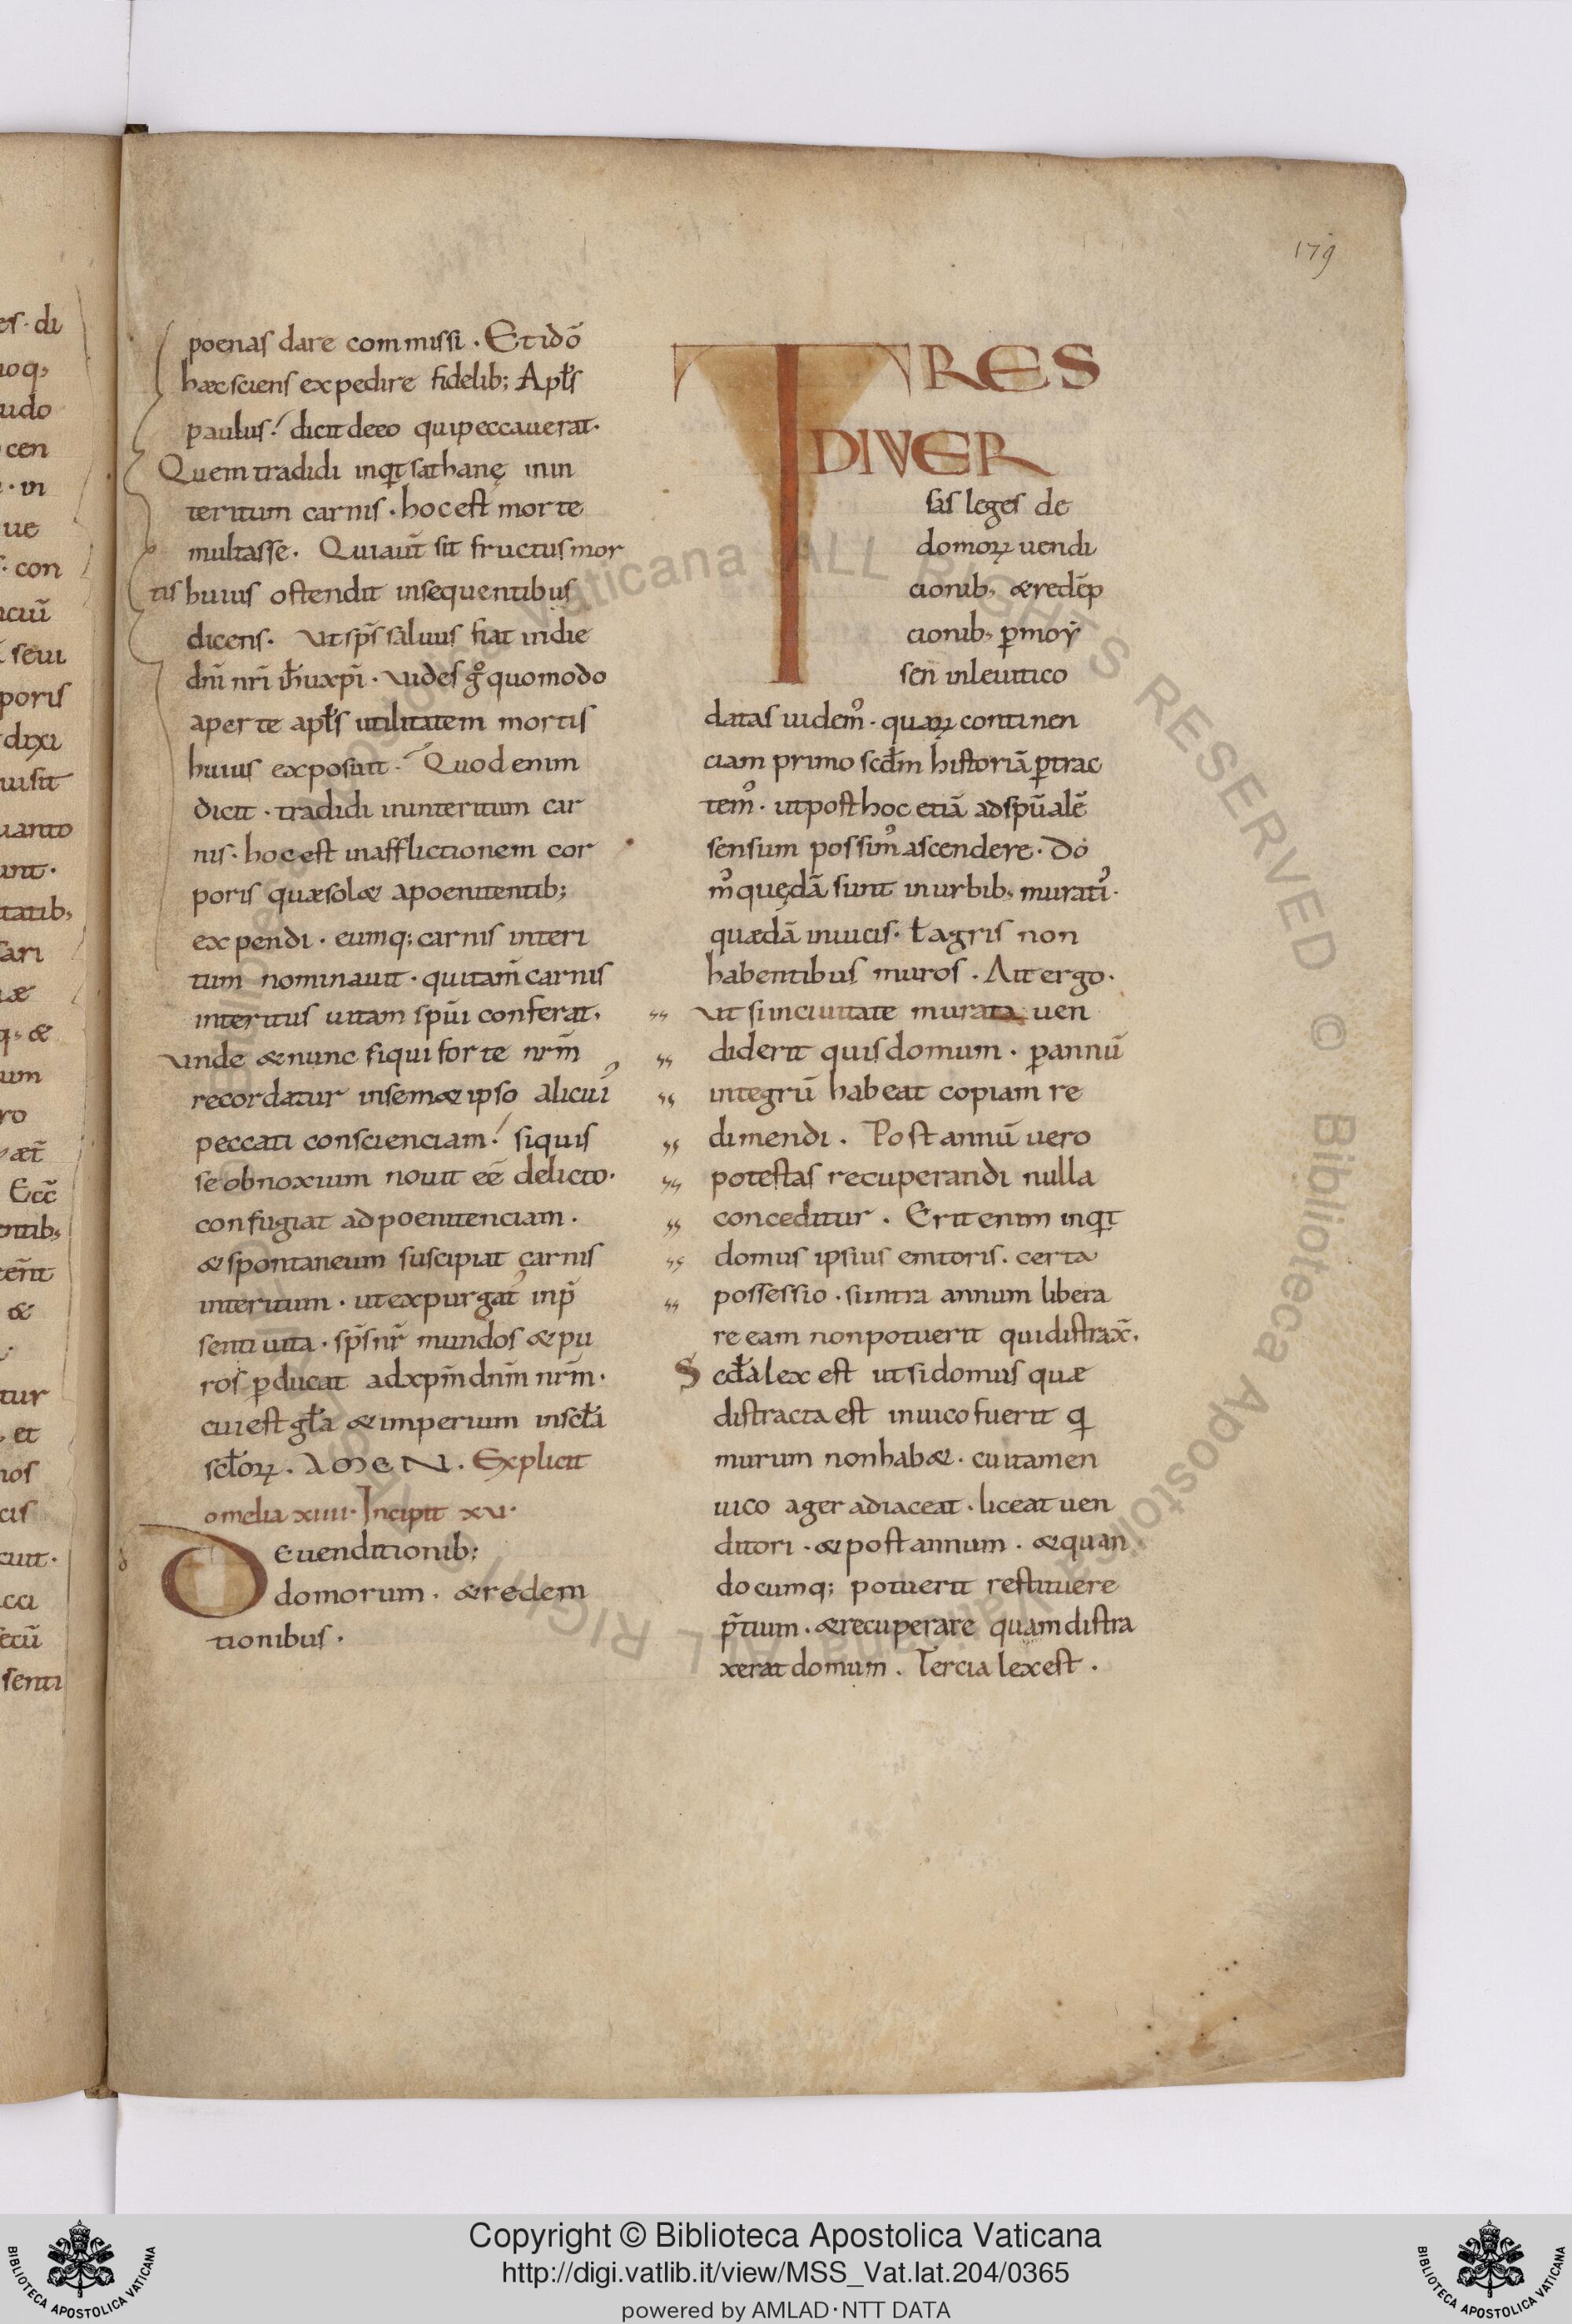 179
poenas dare commissi · Et idō
hæc sciens expedire fidelib; Apƚs
paulus · dicit de eo qui peccauerat·
Quem tradidi inq̄t sathanę in in
teritum carnis · hoc est morte
multasse. Qui aut̄ sit fructus mor
tis huius ostendit in sequentibus
dicens. Ut sp̄s saluus fiat in die
dn̄i nr̄i ih̄u xp̄i · uides gͦ quomodo
aperte apƚs utilitatem mortis
huius exposuit · Quod enim
dicit · tradidi in interitum car
nis · hoc est in afflictionem cor
poris quæ solæ a poenitentib;
expendi · eumq; carnis interi
tum nominauit · qui tam̄ carnis
interitus uitam spūi conferat.
unde & nunc si qui forte nr̄m
recordatur in semæipso alicuiꝰ
peccati conscienciam · si quis
se obnoxium nouit eē delicto.
confugiat ad poenitenciam.
& spontaneum suscipiat carnis
interitum · ut expurgatꝰ in p̄
senti uita · sp̄s nr̄ mundos & pu
ros ꝑducat ad xp̄m dn̄m nr̄m·
cui est gƚa & imperium in scƚa
scƚoꝝ. AMEN. Explicit
omelia xiiii· Incipit xv·
De uenditionib;
domorum · & redem
tionibus·
TRES
DIVER
sas leges de
domoꝝ uendi
cionib; & redēp
cionib; ꝑ moy
sen in leuitico
datas uidemꝰ · quaꝝ continen
ciam primo scd̄m historiā ꝑtrac
temꝰ · ut post hoc etiā ad spūalē
sensum possimꝰ ascendere · do
mꝰ quędā sunt in urbib; muratiꝰ·
quædā in uicis · ƚ agris non
habentibus muros · Ait ergo·
Ut si in ciuitate murata uen
diderit quis domum · ꝑ annū
integrū habeat copiam re
dimendi. Post annū uero
potestas recuperandi nulla
conceditur. Erit enim inq̄t
domus ipsius emtoris. certa
possessio · si intra annum libera
re eam non potuerit qui distrax̄.
Scd̄a lex est ut si domus quæ
distracta est in uico fuerit q̄
murum non habæ · cui tamen
uico ager adiaceat · liceat uen
ditori · & post annum · & quan
documq; potuerit restituere
p̄tium · & recuperare quam distra
xerat domum. Tercia lex est ·
Copyright © Biblioteca Apostolica Vaticana
http://digi.vatlib.it/view/MSS_Vat.lat.204/0365
powered by AMLAD·NTT DATA